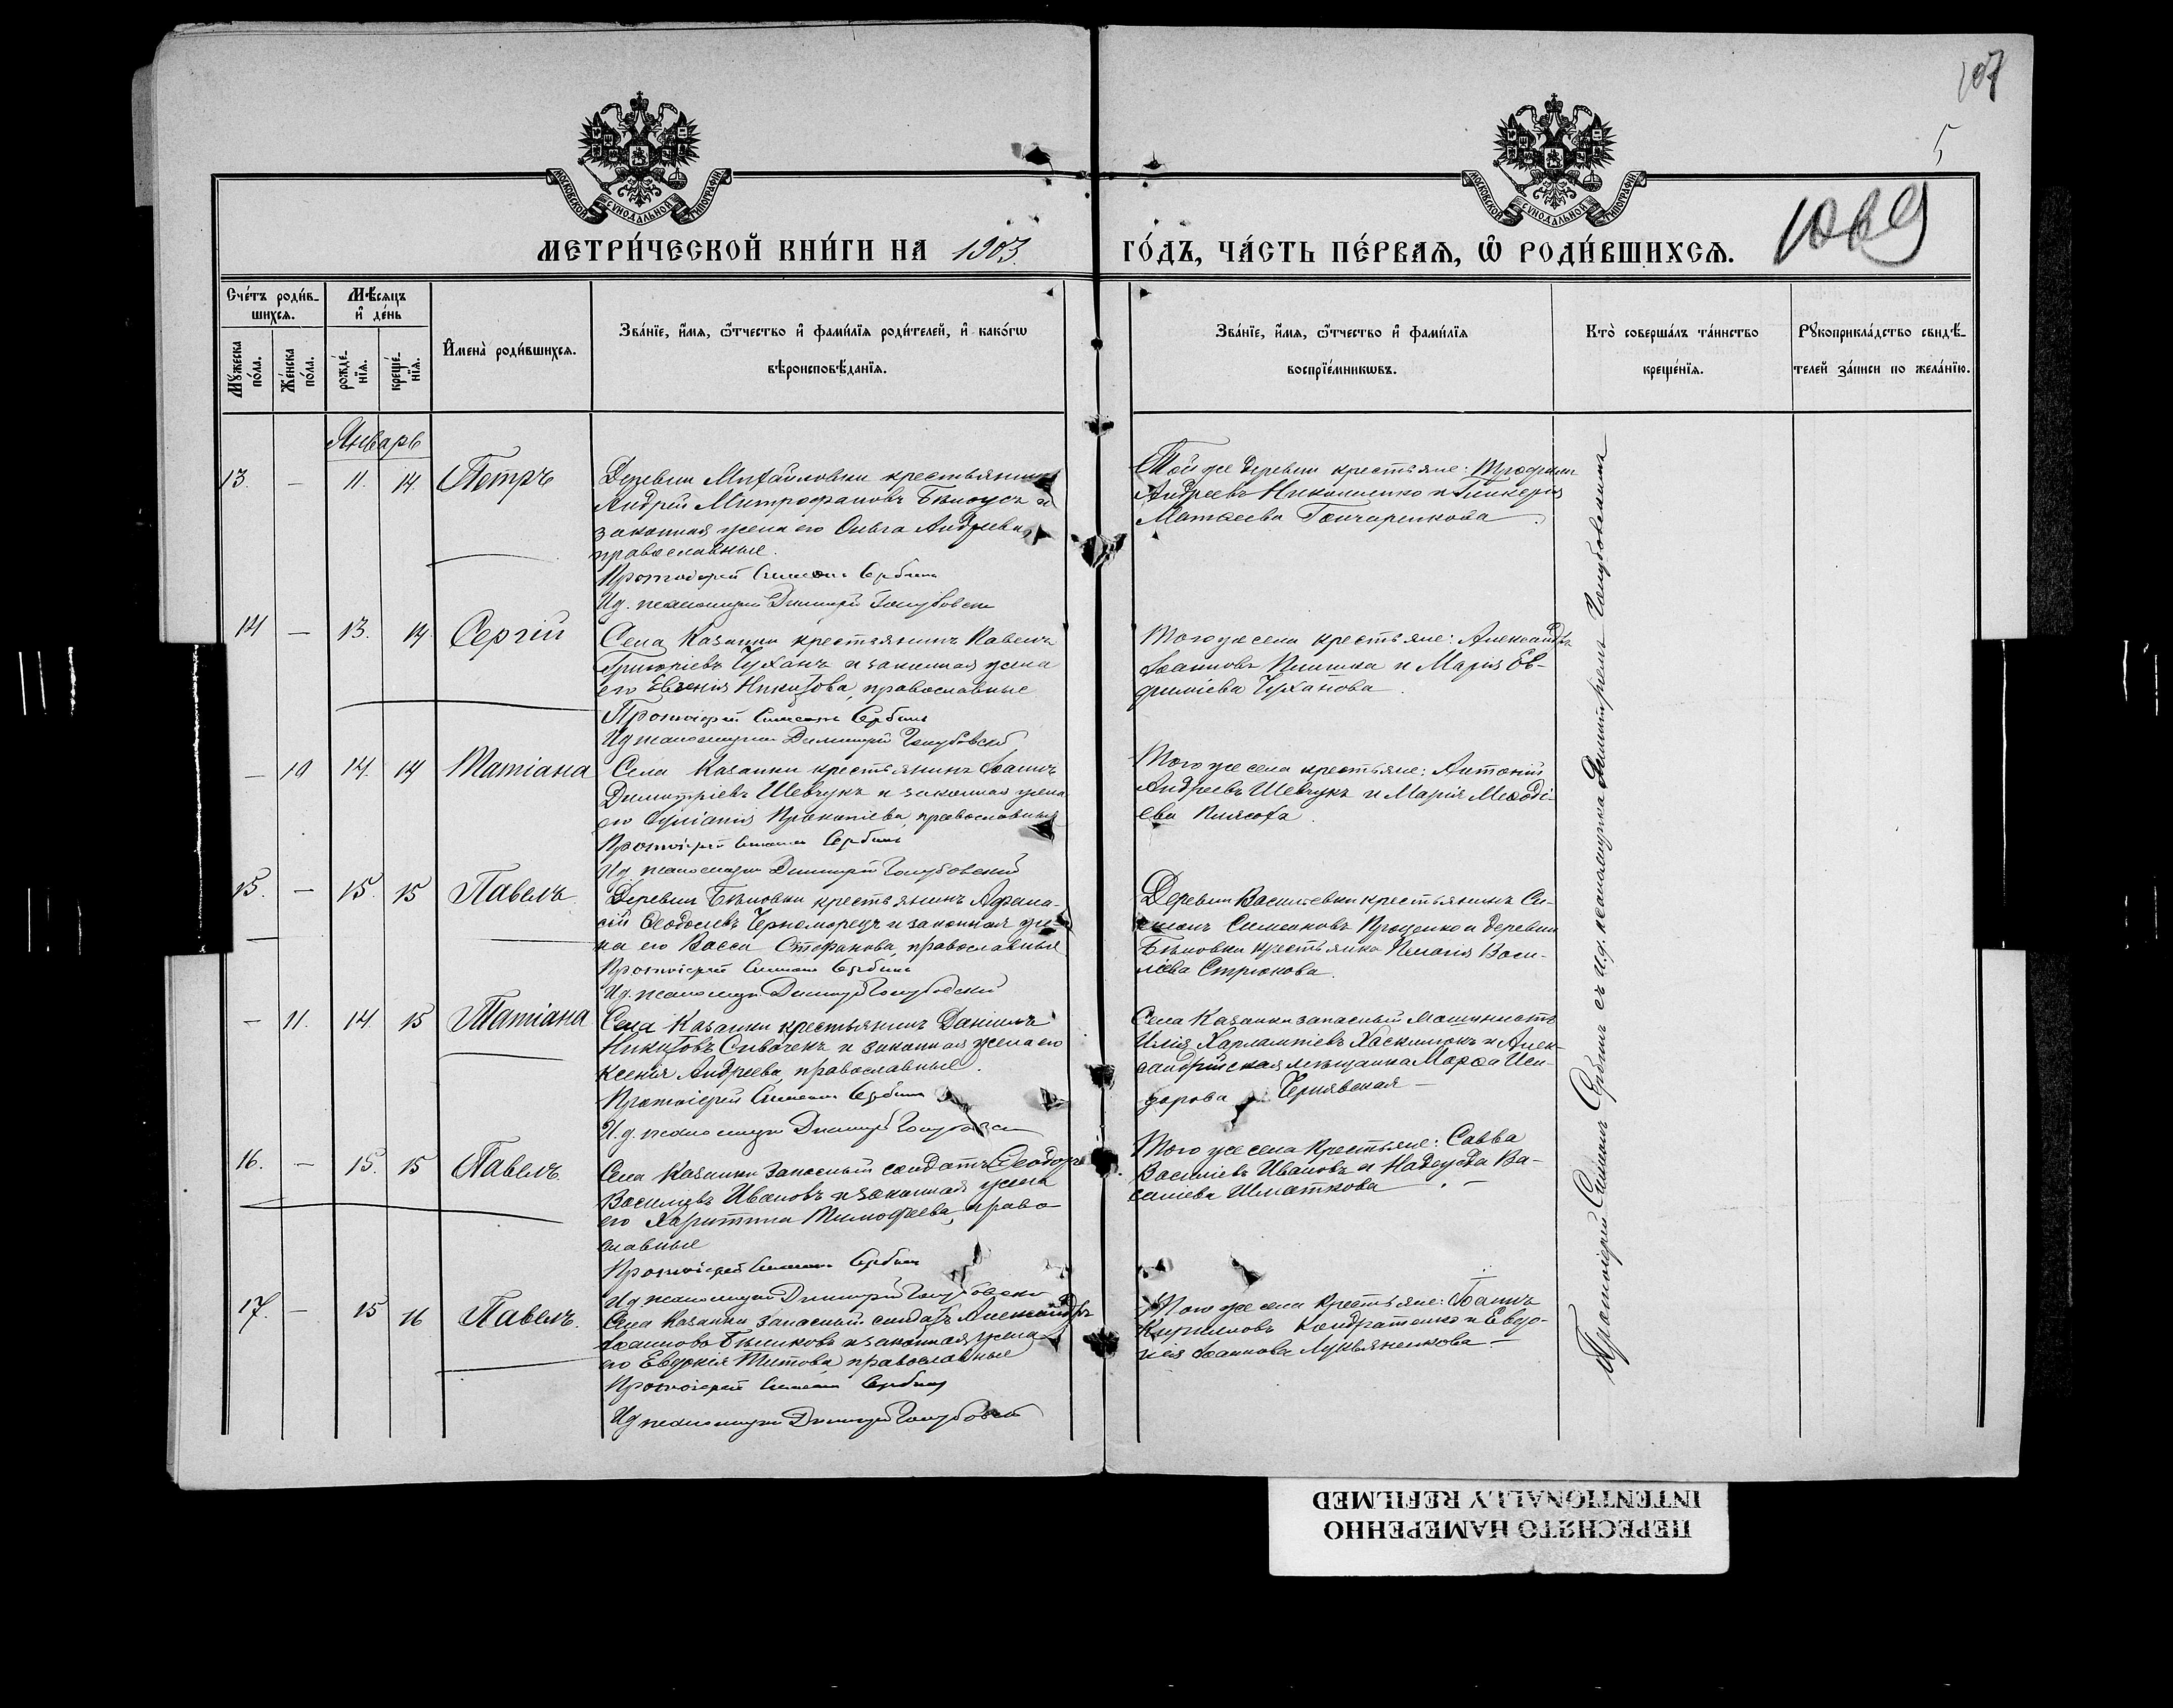 107
5
1069
МОСКОВСКОЙ СУНОДАЛЬНОЙ ТИПОГРАФІИ
МОСКОВСКОЙ СУНОДАЛЬНОЙ ТИПОГРАФІИ
МЕТРИ́ЧЕСКОЙ КНИ́ГИ НА 1903 ГО́ДЪ, ЧА́СТЬ ПЕ́РВАѦ, Ѽ РОДИ́ВШИХСѦ.
Сче́тъ роди́в-
шихсѧ.
Мѣ́сѧцъ
и҆ де́нь
Мꙋ́жеска по́ла.
Же́нска по́ла.
рожде́-
нїѧ.
креще́-
нїѧ.
И҆мена̀ роди́вшихсѧ.
Зва́нїе, и҆́мѧ, ѻ҆́тчество и҆ фами́лїѧ роди́телей, и҆ како́гѡ
вѣроисповѣ́данїѧ.
Зва́нїе, и҆́мѧ, ѻ҆́тчество и҆ фами́лїѧ
воспрїе́мникѡвъ.
Кто̀ соверша́лъ та́инство
креще́нїѧ.
Рꙋкоприкла́дство свидѣ́-
телей за́писи по жела́нїю.
Январь
13. — 11. 14. Петръ
Деревни Михайловки крестьянинъ
Андрей Митрофановъ Бѣлоусъ и
законная жена его Ольга Андреева,
православные.
Протоіерей Симеонъ Сербинъ
И.д. псаломщика Димитрій Голубовскій
Той же деревни крестьяне: Трофимъ
Андреевъ Николенко и Гликерія
Матѳеева Гончаренкова
14 — 13. 14. Сергій
Села Казанки крестьянинъ Павелъ
Григоріевъ Чуханъ и законная жена
его Евгенія Никитова, православные
Протоіерей Симеонъ Сербинъ
И.д. псаломщика Димитрій Голубовскій
Того же села крестьяне: Александръ
Іоанновъ Плишка и Марія Ев-
фиміева Чуханова.
— 10 14. 14 Татіана
Села Казанки крестьянинъ Іоаннъ
Димитріевъ Шевчукъ и законная жена
его Іуліанія Прокопіева, православные
Протоіерей Симеонъ Сербинъ
И.д. псаломщика Димитрій Голубовскій
Того же села крестьяне: Антоній
Андреевъ Шевчукъ и Марія Меѳоді-
ева Плясова.
15. — 15. 15 Павелъ
Деревни Бѣловки крестьянинъ Афана-
сій Ѳеодосіевъ Черноморецъ и законная же-
на его Васса Стефанова, православные
Протоіерей Симеонъ Сербинъ
И.д. псаломщика Димитрій Голубовскій
Деревни Васильевки крестьянинъ Си-
меонъ Симеоновъ Проценко и деревни
Бѣловки крестьянка Пелагія Васи-
ліева Стрюкова.
— 11. 14. 15 Татіана
Села Казанки крестьянинъ Даніилъ
Никитовъ Сивачекъ и законная жена его
Ксенія Андреева, православные.
Протоіерей Симеонъ Сербинъ
И.д. псаломщика Димитрій Голубовскій
Села Казанки запасный машинистъ
Илія Харлампіевъ и Алек-
сандрійская мѣщанка Марѳа Иси-
дорова Чернявская —
16. — 15. 15 Павелъ.
Села Казанки запасный солдатъ Ѳеодоръ
Василіевъ Ивановъ и законная жена
его Харитина Тимофеева, право-
славные
Протоіерей Симеонъ Сербинъ
И.д. псаломщика Димитрій Голубовскій
Того же села крестьяне: Савва
Василіевъ Ивановъ и Надежда Ва-
силіева Шматкова. —
17. — 15 16 Павелъ.
Села Казанки запасный солдатъ Александръ
Іоанновъ и законная жена
его Евдокія Титова, православные
Протоіерей Симеонъ Сербинъ
И.д. псаломщика Димитрій Голубовскій
Того же села крестьяне: Іоаннъ
Кирилловъ Кондратенко и Евдо-
кія Іоаннова Лукьяненкова. —
Протоіерей Симеонъ Сербинъ съ и.д. псаломщика Димитріемъ Голубовскимъ
ПЕРЕСНЯТО НАМЕРЕННО
INTENTIONALLY REFILMED